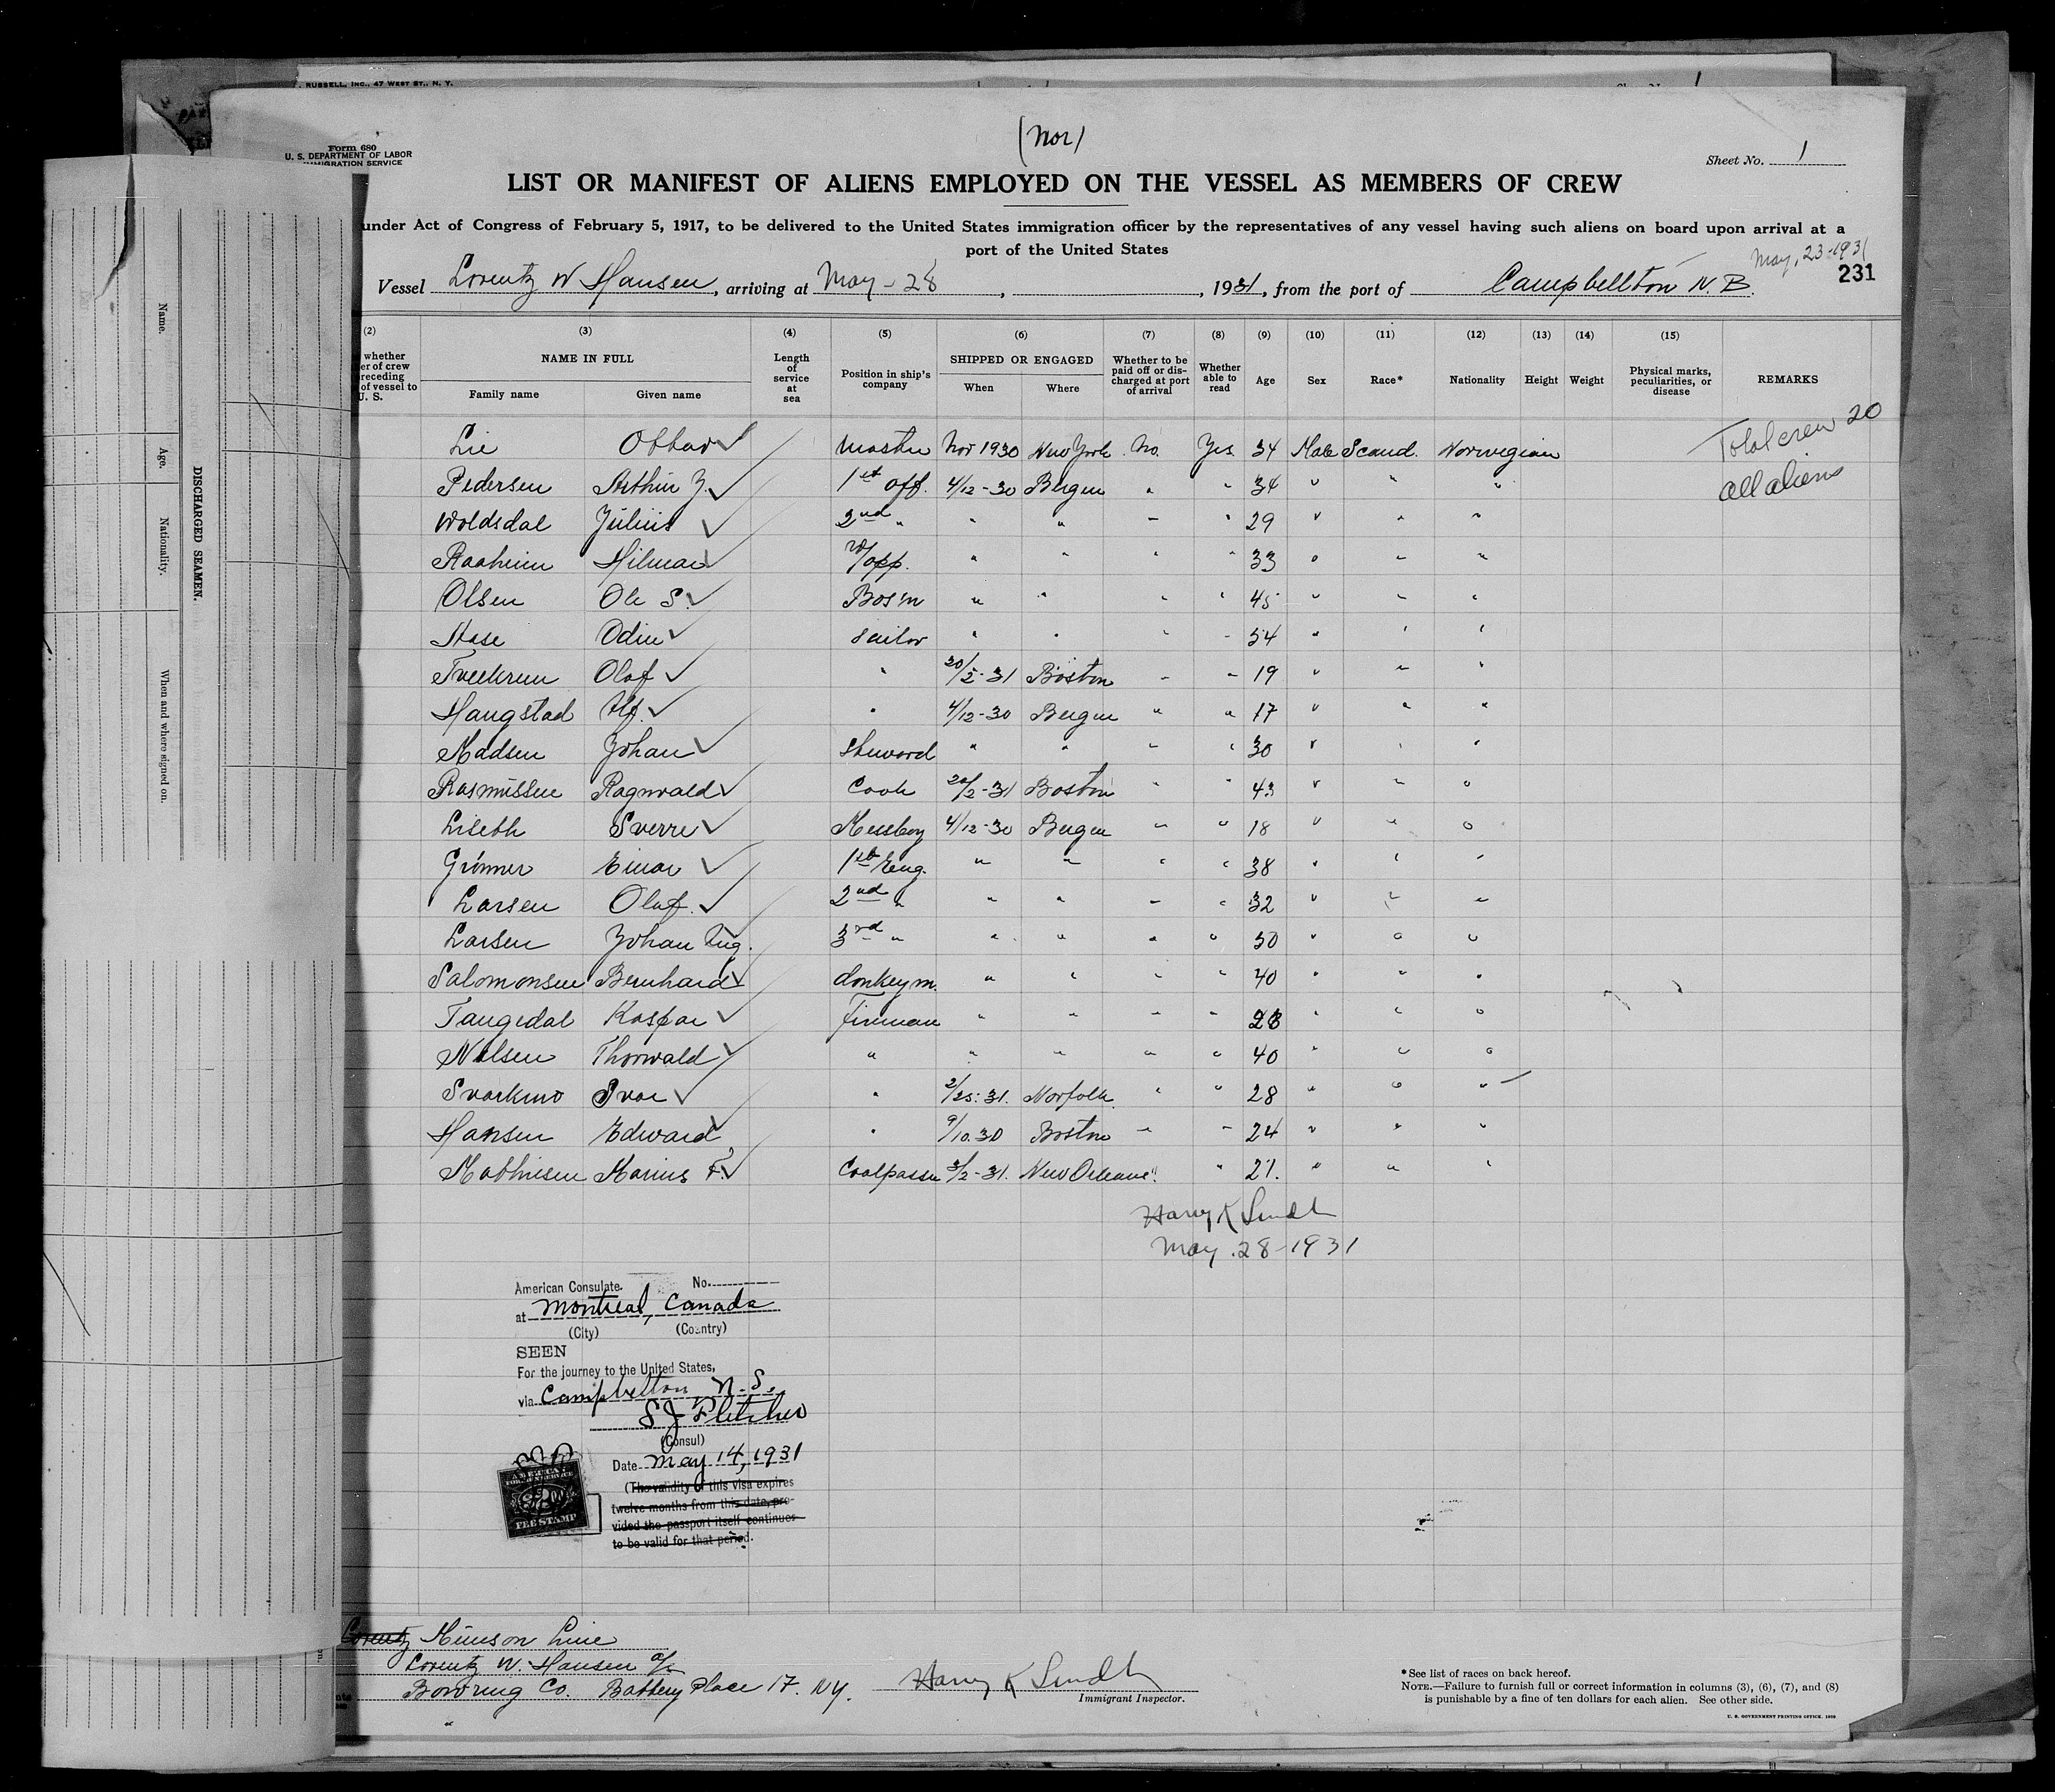 RUSSELL, INC., 47 WEST ST., N. Y.
(Nor)
Form 680
U. S. DEPARTMENT OF LABOR
IMMIGRATION SERVICE
Sheet No. 1
LIST OR MANIFEST OF ALIENS EMPLOYED ON THE VESSEL AS MEMBERS OF CREW
under Act of Congress of February 5, 1917, to be delivered to the United States immigration officer by the representatives of any vessel having such aliens on board upon arrival at a
port of the United States
May, 23-1931
231
Vessel Lorentz W Hansen, arriving at May - 28, , 1931, from the port of Campbellton N. B.
(2) (3) (4) (5) (6) (7) (8) (9) (10) (11) (12) (13) (14) (15)
whether
er of crew
receding
of vessel to
U. S.
NAME IN FULL
Family name Given name
Length
of
service
at
sea
Position in ship's
company
SHIPPED OR ENGAGED
When Where
Whether to be
paid off or dis-
charged at port
of arrival
Whether
able to
read
Age Sex Race* Nationality Height Weight
Physical marks,
peculiarities, or
disease
REMARKS
Lie Ottar Master Nov 1930 New York No. Yes 34 Male Scand. Norwegian
Total crew 20
all aliens
Pedersen Arthur 1st off. 4/12-30 Bergen " " 34 " " "
Woldsdal Julius 2nd " " " " " 29 " " "
Raaheim Hilmar opp. " " " " 33 " " "
Olsen Ole S. Bos'n " " " " 45 " " "
Hase Odin Sailor " " " " 54 " " "
Olaf " 20/2-31 Boston " " 19 " " "
Haugstad Alf. " 4/12-30 Bergen " " 17 " " "
Madsen Johan Steward " " " " 30 " " "
Rasmussen Ragnvald Cook 20/2-31 Boston " " 43 " " "
Liseth Sverre Messboy 4/12-30 Bergen " " 18 " " "
Grönner Einar 1st Eng. " " " " 38 " " "
Larsen Olaf. 2nd " " " " " 32 " " "
Larsen Johan Ing. 3rd " " " " " 30 " " "
Salomonsen Bernhard donkeym. " " " " 40 " " "
Tangedal Kaspar Fireman " " " " 28 " " "
Nilsen Thorwald " " " " " 40 " " "
Ivar " 2/25-31. Norfolk " " 28 " " "
Hansen Edward " 9/10.30 Boston " " 24 " " "
Mathisen Marius F. Coalpasser 3/2-31. New Orleans " " 21. " " "
Harry K Lindh
May. 28-1931
American Consulate. No.
at Montreal, Canada
(City) (Country)
SEEN
For the journey to the United States,
via Campbelton N. S.
S J Fletcher
(Consul)
Date May 14, 1931
(The validity of this visa expires
twelve months from this date, pro-
vided the passport itself continues
to be valid for that period.
AMERICAN
FOREIGN SERVICE
FEE STAMP
Lorentz Munson Line
Lorentz W. Hansen a/s
Bowring Co. Battery Place 17. NY.
Harry K Lindh
Immigrant Inspector.
*See list of races on back hereof.
NOTE.—Failure to furnish full or correct information in columns (3), (6), (7), and (8)
is punishable by a fine of ten dollars for each alien. See other side.
U. S. GOVERNMENT PRINTING OFFICE. 1929
DISCHARGED SEAMEN.
Name.
Age.
Nationality.
When and where signed on.